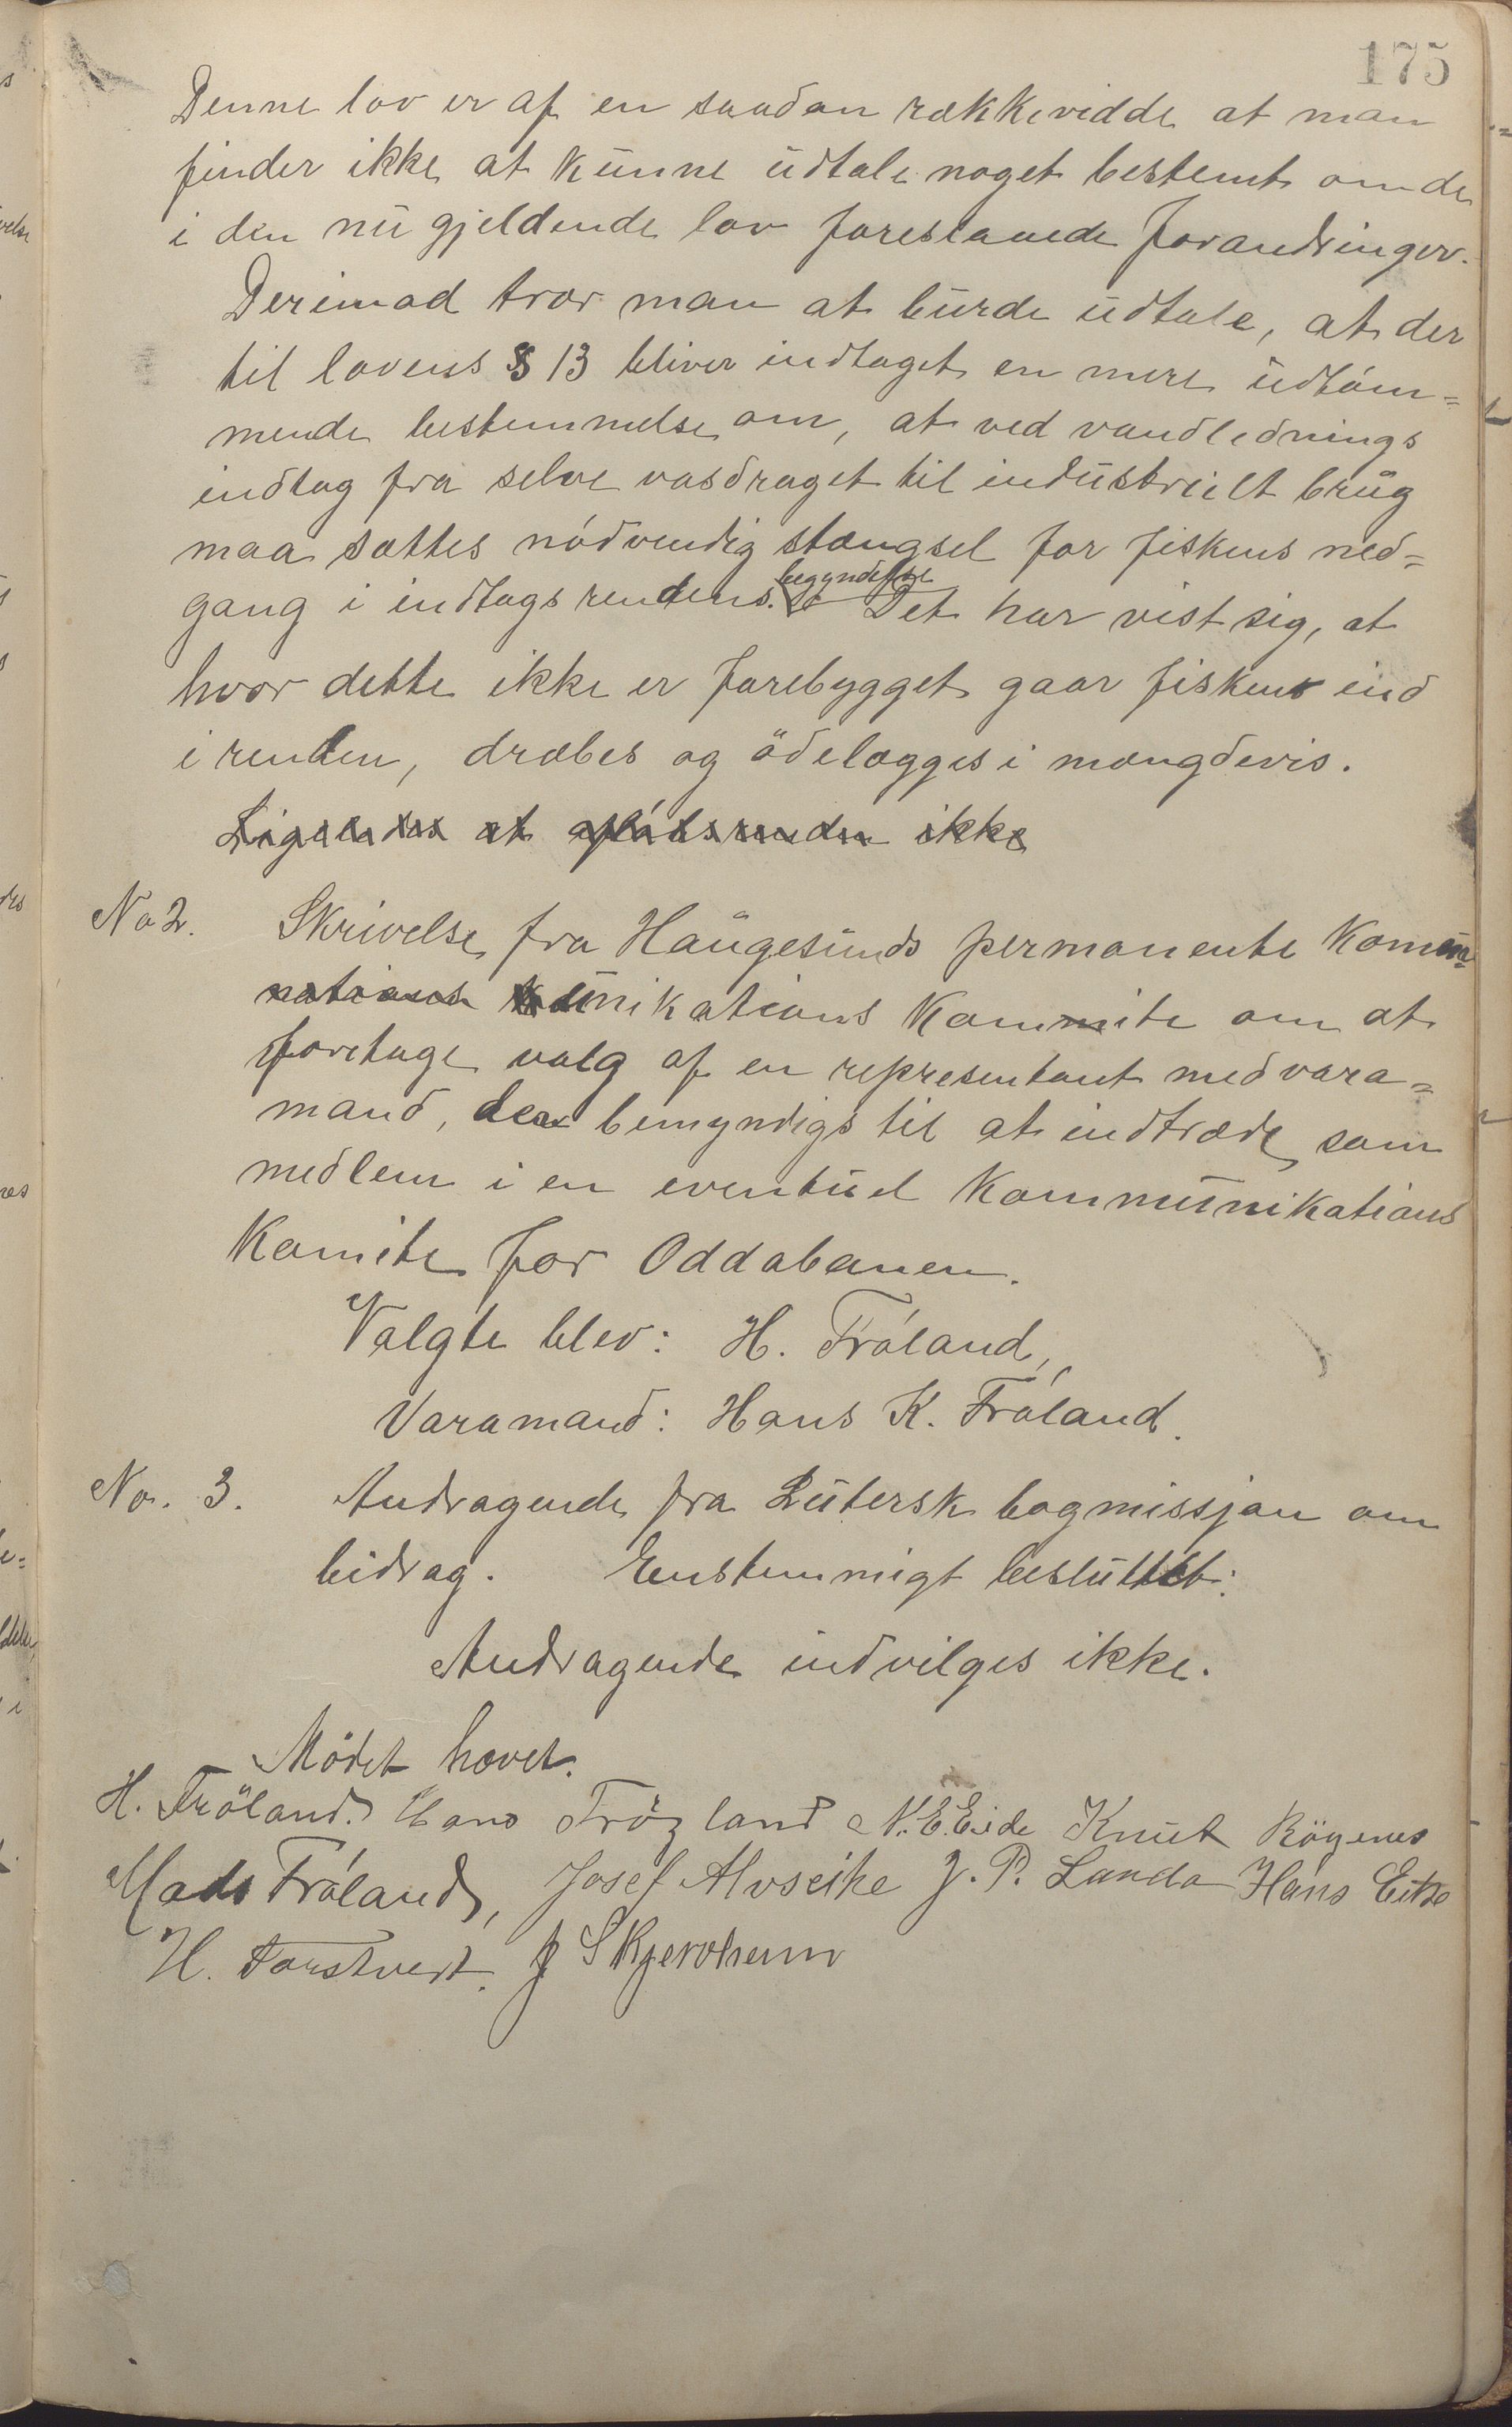 175
Denne lov er af en saadan rækkevidde at man
finder ikke at kunne udtale noget bestemt om de
i den nu gjeldende lov foreslaaede forandringer.
Derimod tror man at burde udtale, at der
til lovens § 13 bliver indtaget en mere udtöm=
mende bestemmelse om, at ved vandlednings
indtag fra selve vasdraget til industrielt brug
maa sættes nödvendig stængsel for fiskens ned=
gang i indtagsrendens begyndelse. Det har vist sig, at
hvor dette ikke er forebygget gaar fisken ind
i renden, dræbes og ödelægges i mængdevis.
at ikke
No 2. Skrivelse fra Haugesunds permanente Kommu=
nikations Komite om at
foretage valg af en representant med vara=
mand, der bemyndigs til at indtræde som
medlem i en eventuel Kommunikations
Komite for Oddabanen.
Valgte blev: H. Fröland,
Varamand: Hans K. Fröland.
No. 3. Andragende fra Lutersk bogmissjon om
bidrag. Enstemmigt besluttet:
Andragende indvilges ikke.
Mödet hævet.
H. Fröland. Hans Fröland N. E. Eide Knut Rögenes
Mads Fröland, Josef Alvseike J. P. Landa Hans Eide
H. J Skjervheim